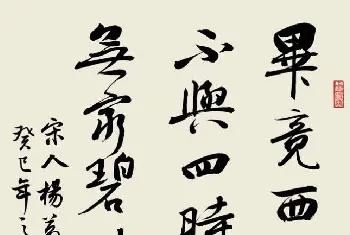 畢竟西
不與四時
無窮碧
宋人楊萬
癸巳年